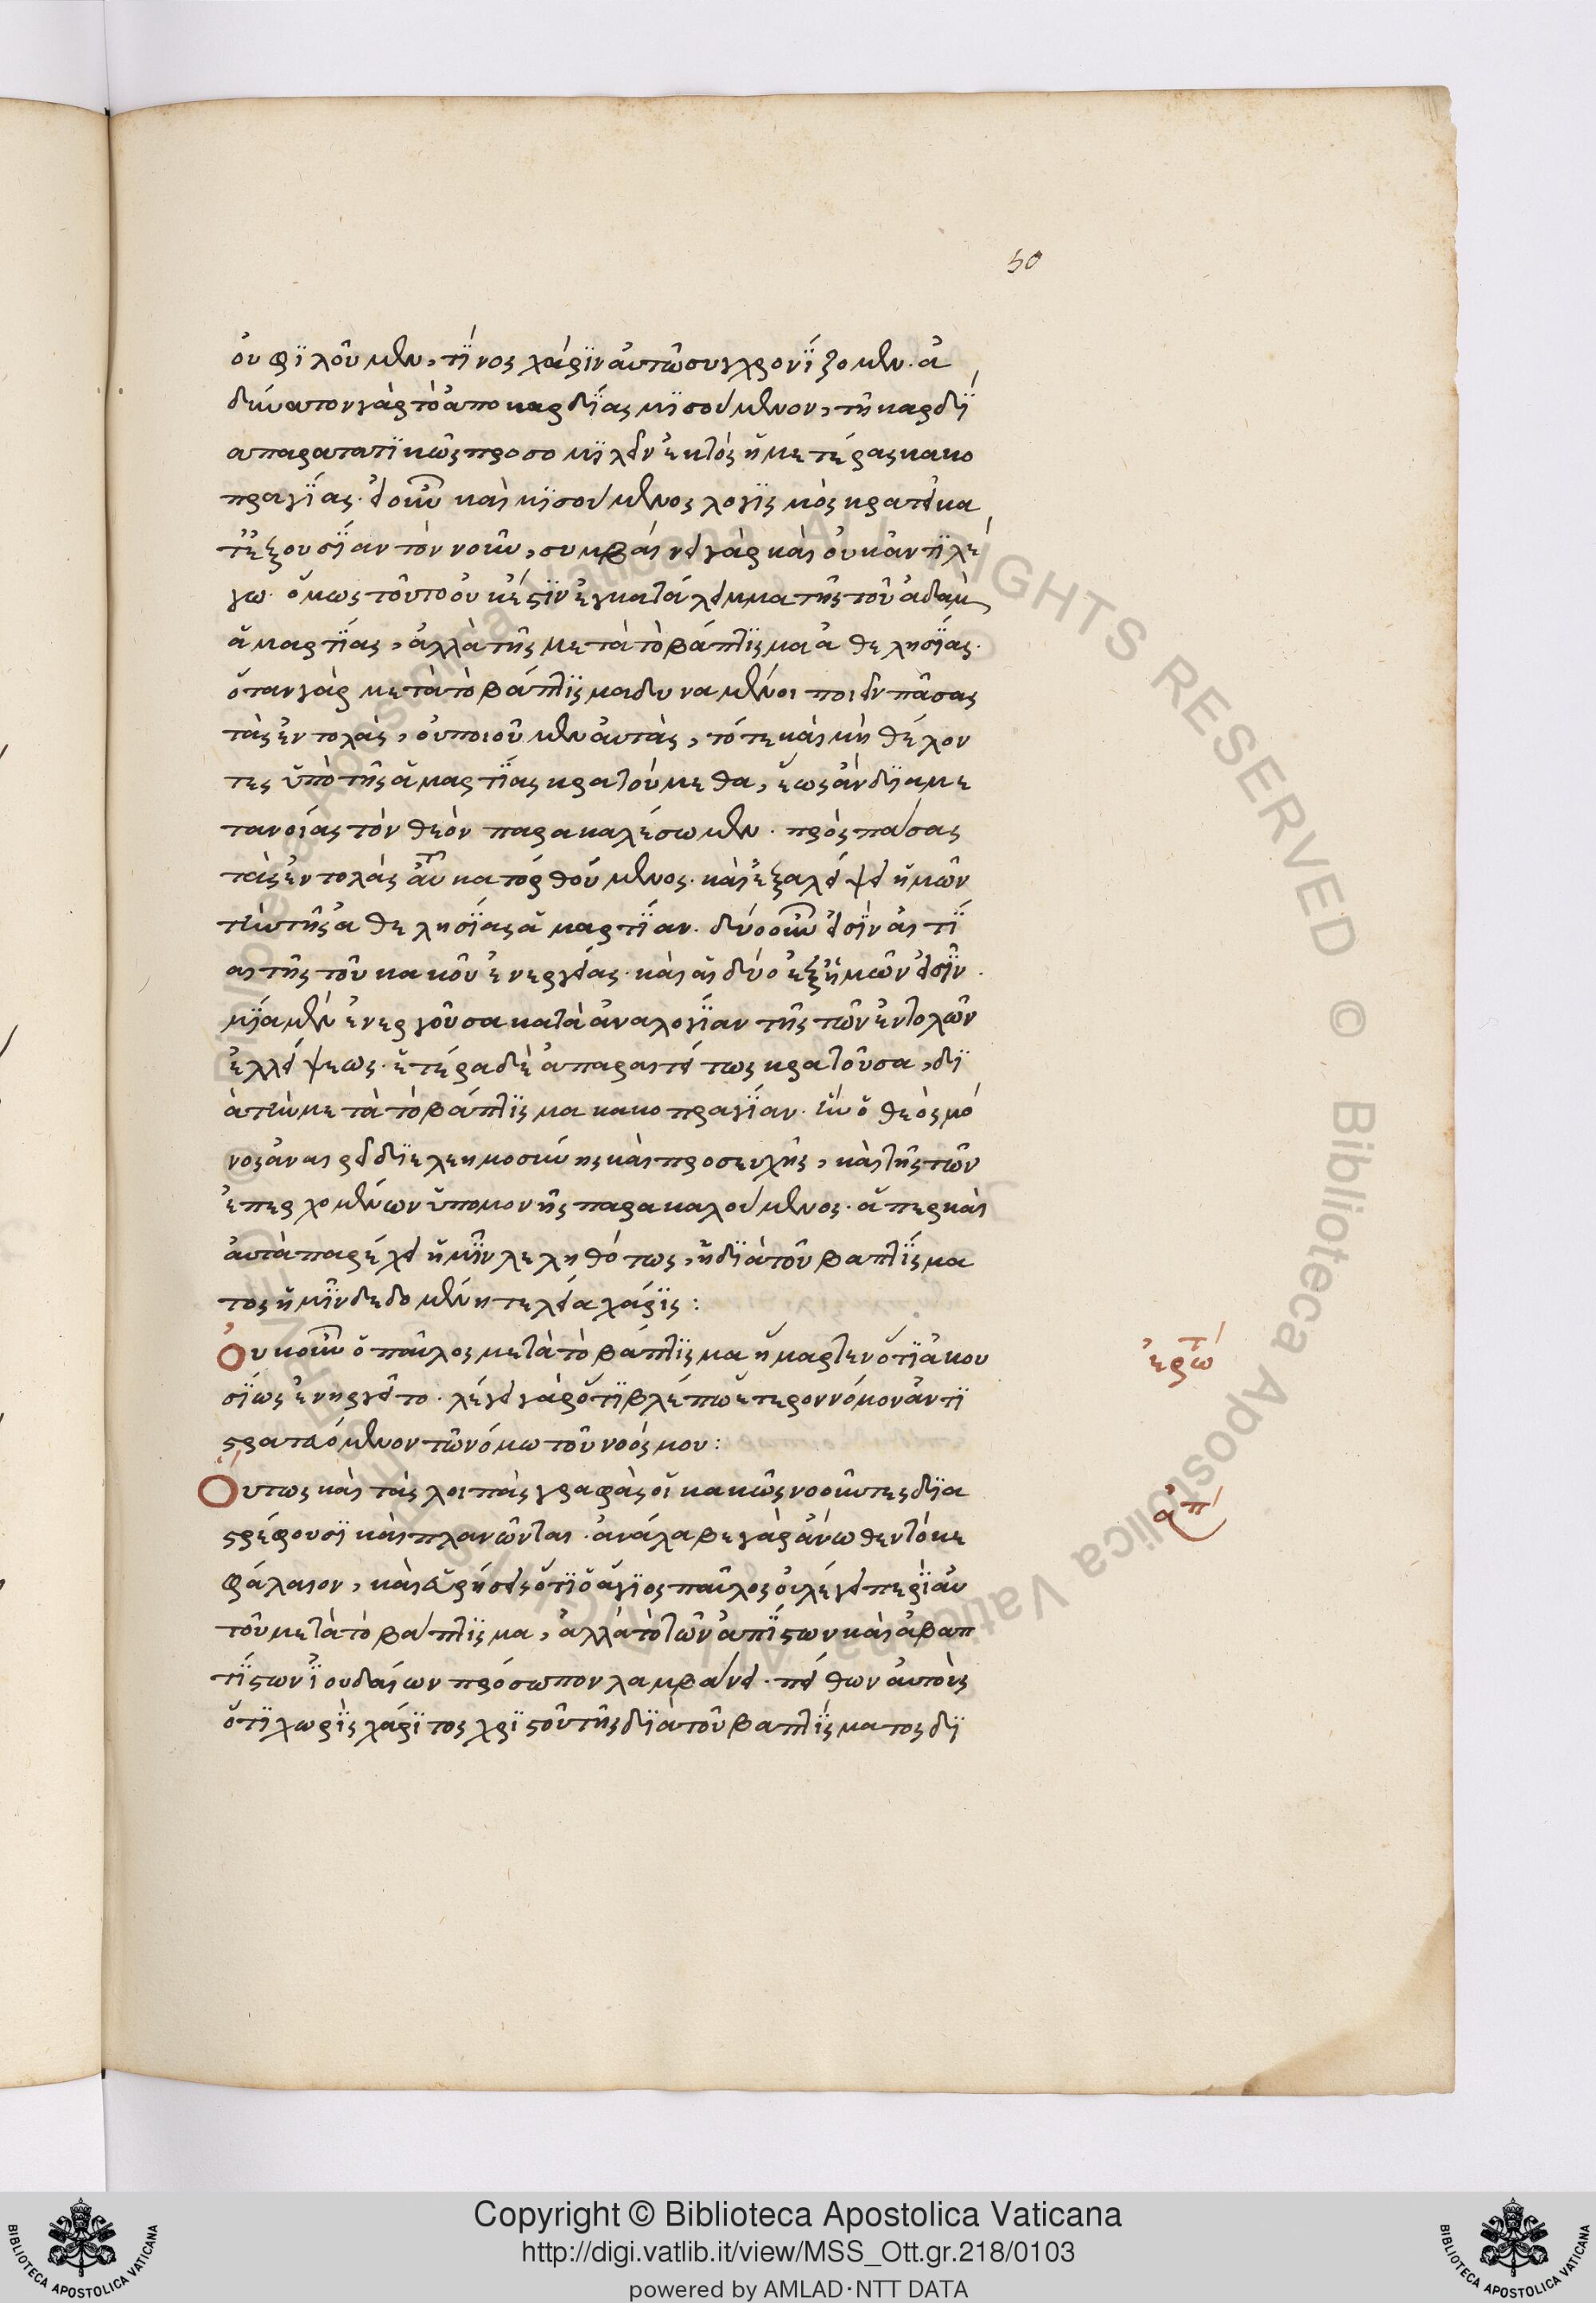 50
οὐ φϊλοῦμεν, τίνος χάριν αὐτῶ συγχρονίζομεν. ἀ
δύνατον γὰρ τὸ ἀπο καρδίας μϊσούμενον, τῆ καρδί
α παρατατϊκῶς προσομϊλεῖν ἐκτὸς ἡμετέρας κακο
πραγίας. εἰ οὖν καὶ μϊσούμενος λογϊσμὸς κρατεῖ κα
τ' ἐξουσίαν τὸν νοῦν, συμβαίνει γὰρ καὶ οὐκ ἀντϊλέ
γω. ὅμως τοῦτο οὐκ έστϊν ἐγκατάλειμμα τῆς τοῦ ἀδαμ
ἁμαρτίας, ἀλλὰ τῆς μετὰ τὸ βάπτϊσμα ἀθελησίας.
ὅταν γὰρ μετὰ τὸ βάπτϊσμα δυναμένοι ποιεῖν πᾶσας
τὰς ἐντολὰς, οὐ ποιοῦμεν αὐτὰς, τότε καὶ μὴ θέλον
τες ὑπὸ τῆς ἁμαρτίας κρατούμεθα, ἕως ἂν δϊα με
τανοίας τὸν θεὸν παρακαλέσωμεν. πρὸς πάσας
τὰς ἐντολὰς αὐτοῦ κατορθούμενος. καὶ ἐξαλείψει ἡμῶν
τὴν τῆς ἀθελησίας ἁμαρτίαν. δύο οὖν εἰσϊν αἰτί
αι τῆς τοῦ κακοῦ ἐνεργείας. καὶ αἱ δύο ἐξ ἡμῶν εἰσϊν.
μία μὲν ἐνεργοῦσα κατὰ ἀναλογίαν τῆς τῶν ἐντολῶν
ἐλλείψεως. ἑτέρα δὲ ἀπαραιτείτως κρατοῦσα, δϊ
ὰ τὴν μετὰ τὸ βάπτϊσμα κακοπραγίαν. ἣν ὁ θεὸς μό
νος ἀναιρεῖ δϊ ελεημοσύνης καὶ προσευχῆς, καὶ τῆς τῶν
ἐπερχομένων ὑπομονῆς παρακαλούμενος. ἅπερ καὶ
αὐτὰ παρέχει ἡμῖν λεληθότως, ἡ δϊὰ τοῦ βαπτίσμα
τος ἡμῖν δεδομένη τελεία χάρϊς:
Οὐκοῦν ὁ παῦλος μετὰ τὸ βάπτϊσμα ἥμαρτεν ὅτϊ ἀκου
σίως ἐνηργεῖτο. λέγει γὰρ ὅτϊ βλέπω ἕτερον νόμον ἀντϊ
στρατευόμενον τῶ νόμω τοῦ νοός μου:
ἐρώτ
Οὕτως καὶ τὰς λοιπὰς γραφὰς οἱ κακῶς νοοῦντες δϊα
στρέφουσϊ καὶ πλανῶνται. ἀνάλαβε γὰρ ἄνωθεν τὸ κε
ἀπ
φάλαιον, καὶ εὑρήσεις ὅτϊ ὁ ἅγϊος παῦλος οὐ λέγει περὶ αὐ
τοῦ μετὰ τὸ βάπτϊσμα, ἀλλὰ τὸ τῶν ἀπίστων καὶ ἀβαπ
τίστων ἰουδαίων πρόσωπον λαμβάνει. πείθων αὐτοὺς
ὅτϊ χωρὶς χάρϊτος χρϊστοῦ τῆς δϊὰ τοῦ βαπτίσματος δϊ
Copyright © Biblioteca Apostolica Vaticana
http://digi.vatlib.it/view/MSS_Ott.gr.218/0103
powered by AMLAD·NTT DATA